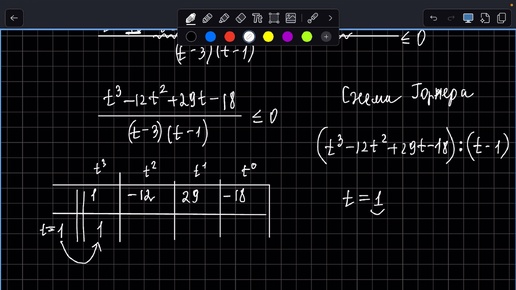 (t-3)(t-1) ≤ 0
t³-12t²+29t-18
(t-3)(t-1)
≤ 0
Схема Горнера
(t³-12t²+29t-18):(t-1)
t=1
t³ t² t¹ t⁰
1 -12 29 -18
t=1 1